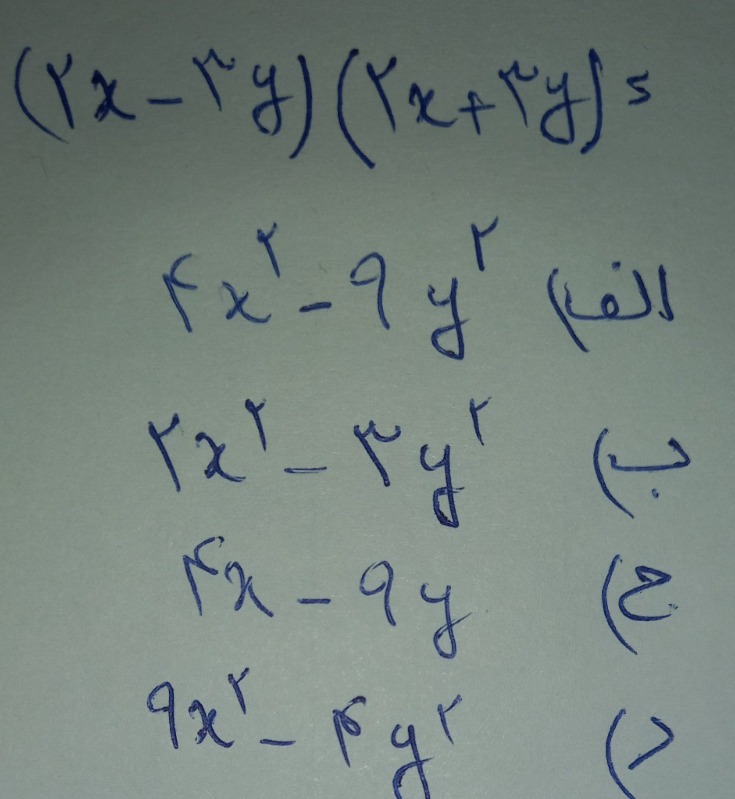 (۲x - ۳y)(۲x + ۳y) =
الف) ۴x^۲ - ۹y^۲
ب) ۲x^۲ - ۳y^۲
ج) ۴x - ۹y
د) ۹x^۲ - ۴y^۲